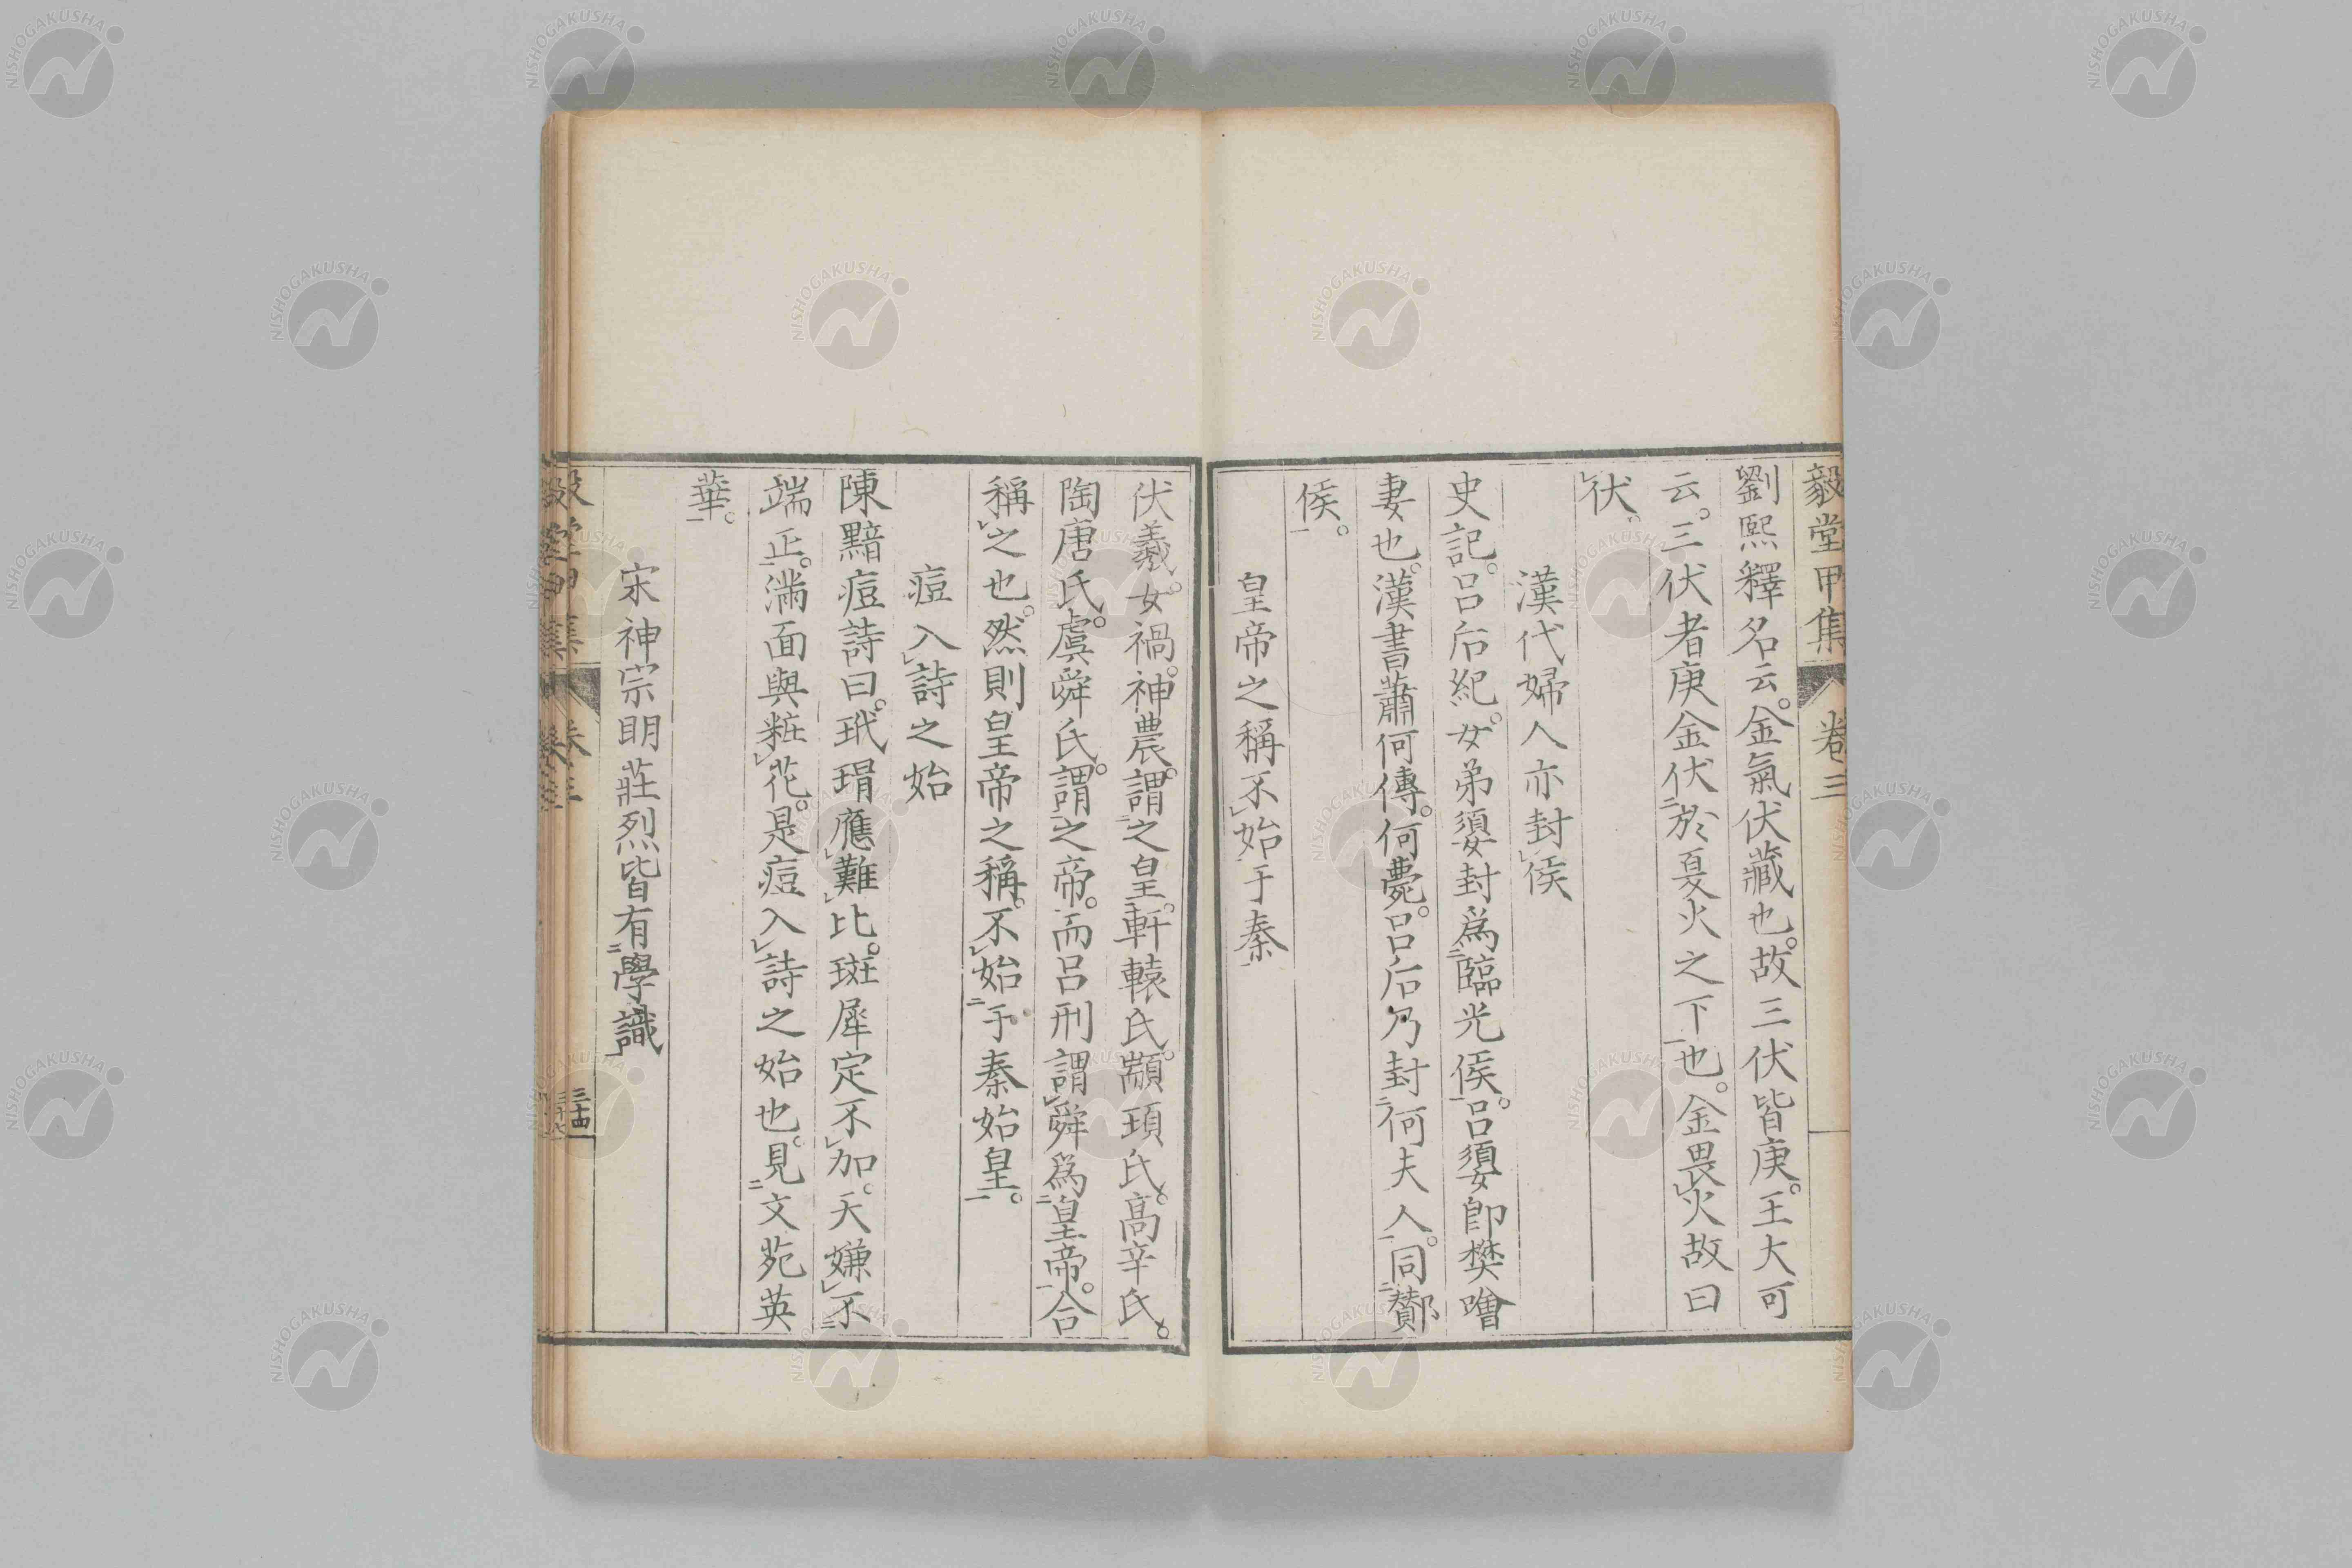 毅堂甲集 卷三
劉熙釋名云。金氣伏藏也。故三伏皆庚。王大可
云。三伏者庚金伏二於夏火之下一也。金畏レ火故曰
レ伏。
漢代婦人亦封レ侯
史記。呂后紀。女弟嬃封爲二臨光侯一。呂嬃卽樊噲
妻也。漢書蕭何傳。何薨。呂后乃封二何夫人一。同二酇
侯一。
皇帝之稱不レ始于秦
伏羲。女禍。神農。謂二之皇一。軒轅氏。顓頊氏。高辛氏。
陶唐氏。虞舜氏。謂二之帝一。而呂刑謂レ舜爲二皇帝一。合
稱レ之也。然則皇帝之稱。不レ始二于秦始皇一。
痘入レ詩之始
陳黯痘詩曰。玳瑁應レ難レ比。斑犀定不レ加。天嫌レ不二
端正一。滿面與粧レ花。是痘入レ詩之始也。見二文苑英
華一。
宋神宗明莊烈皆有二學識一
三十四
NISHOGAKUSHA